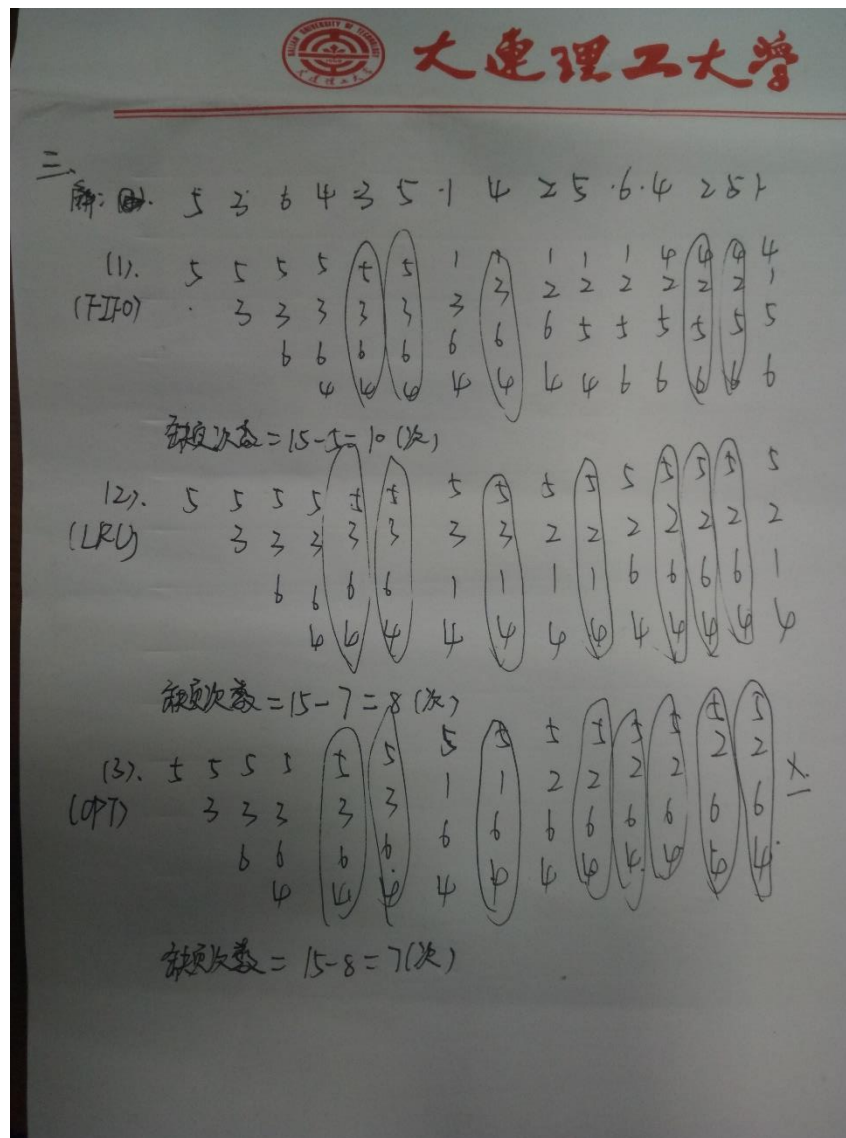 大連理工大学
三、
解: 5 3 6 4 3 5 1 4 2 5 6 4 2 5 1
(1). 5 5 5 5 5 5 1 1 1 1 1 4 4 4 4
(FIFO) 3 3 3 3 3 3 3 2 2 2 2 2 2 1
6 6 6 6 6 6 6 5 5 5 5 5 5
4 4 4 4 4 4 4 6 6 6 6 6
缺页次数=15-5=10(次)
(2). 5 5 5 5 5 5 5 5 5 5 5 5 5 5 5
(LRU) 3 3 3 3 3 3 3 2 2 2 2 2 2 2
6 6 6 6 1 1 1 1 6 6 6 6 1
4 4 4 4 4 4 4 4 4 4 4 4
缺页次数=15-7=8(次)
(3). 5 5 5 5 5 5 5 5 5 5 5 5 5 5
(OPT) 3 3 3 3 3 1 1 2 2 2 2 2 2
6 6 6 6 6 6 6 6 6 6 6 6
4 4 4 4 4 4 4 4 4 4 4
缺页次数=15-8=7(次)